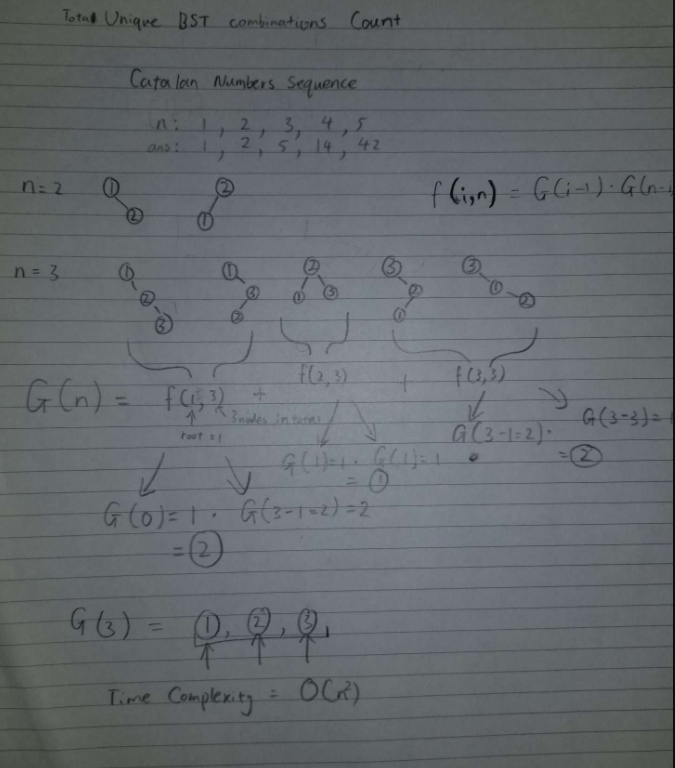 Total Unique BST combinations Count
Catalan Numbers Sequence
n: 1, 2, 3, 4, 5
ans: 1, 2, 5, 14, 42
n=2 1 2 2 1 f(i,n) = G(i-1) · G(n-
n=3 1 2 3 1 3 2 2 1 3 3 2 1 3 1 2
G(n) = f(1,3) + f(2,3) + f(3,3)
3 nodes in total
root = 1
G(3-1=2) · G(3-3)=
= 2
G(1)=1 · G(1)=1
= 1
G(0)=1 · G(3-1=2)=2
= 2
G(3) = 1, 2, 3,
Time Complexity = O(n²)